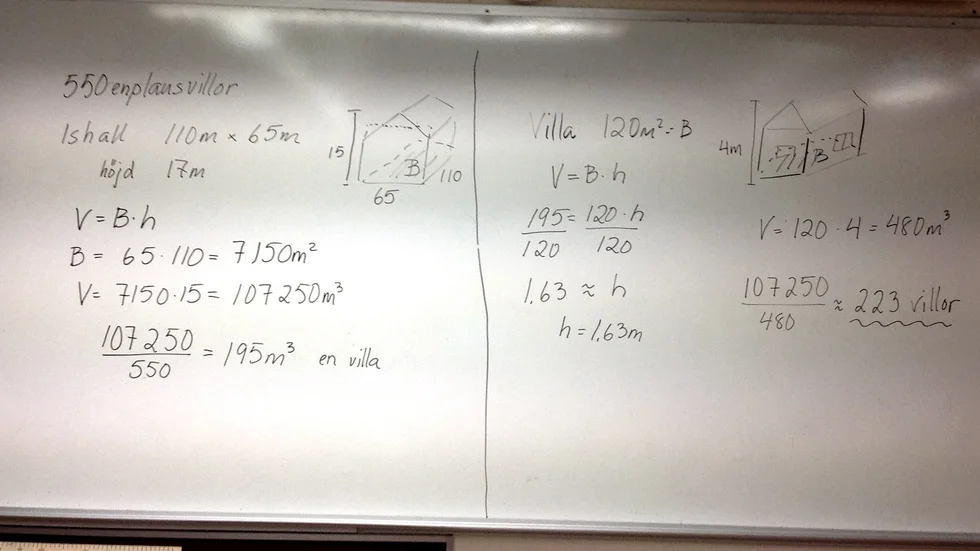 550 enplansvillor
Ishall 110m × 65m
höjd 17m
15
B
110
65
V = B·h
B = 65·110 = 7150m²
V = 7150·15 = 107250m³
107250
550
= 195m³ en villa
Villa 120m² = B
V = B·h
195 = 120·h
120 120
1,63 ≈ h
h = 1,63m
4m
B
V = 120·4 = 480m³
107250
480
≈ 223 villor